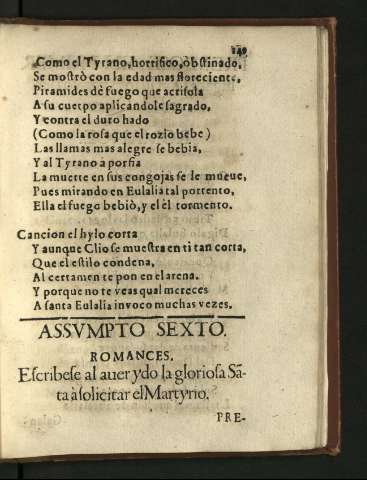 Como el Tyrano, horrifico, òbstinado,
Se mostrò con la edad mas floreciente,
Piramides dè fuego que acrisola
A su cuerpo aplicandole sagrado,
Y contra el duro hado
(Como la rosa que el rozio bebe)
Las llamas mas alegre se bebia,
Y al Tyrano à porfia
La muerte en sus congojas se le mueue,
Pues mirando en Eulalia tal portento,
Ella el fuego bebiò, y el èl tormento.
Cancion el hylo corta
Y aunque Clio se muestra en ti tan corta,
Que el estilo condena,
Al certamen te pon en el arena.
Y porque no te veas qual mereces
A santa Eulalia invoco muchas vezes.
ASSVMPTO SEXTO.
ROMANCES.
Escribese al auer ydo la gloriosa Sã-
ta à solicitar el Martyrio.
PRE-